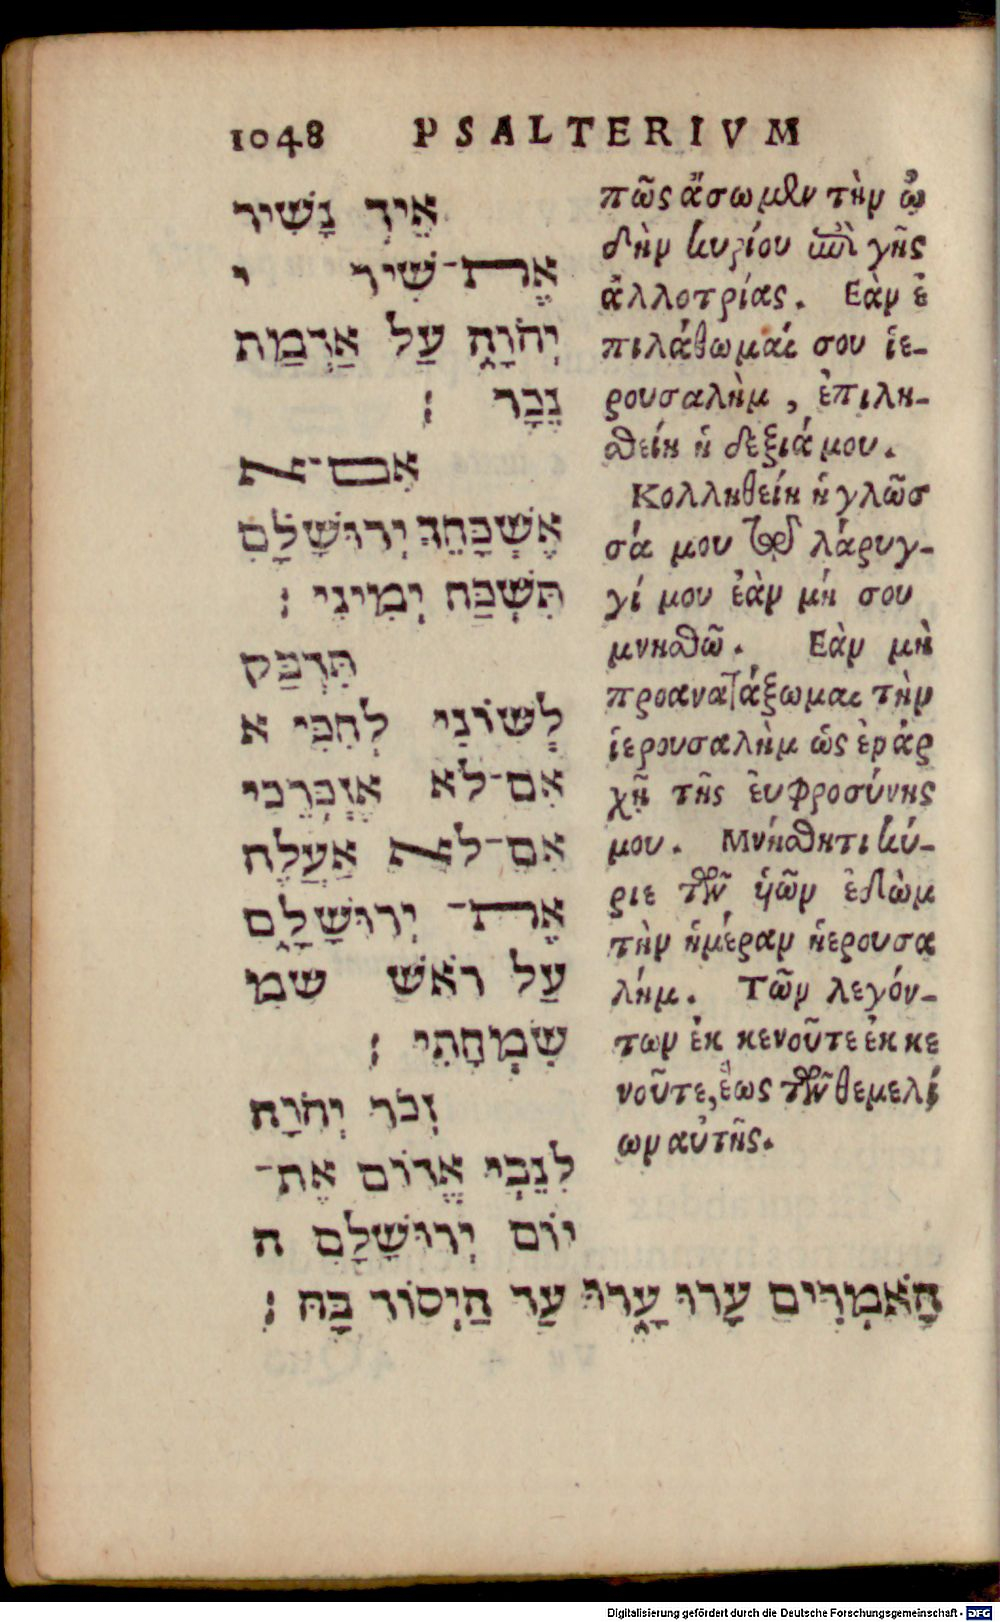 1048 PSALTERIVM
אֵיךְ נָשִׁיר
אֶת־שִׁיר י
יְהֹוָה עַל אַדְמַת
נֵכָר :
אִם־א
אֶשְׁכָּחֵךְ יְרוּשָׁלָםִ
תִּשְׁכַּח יְמִינִי :
תִּדְבַּק
לְשׁוֹנִי לְחִכִּי א
אִם־לֹא אֶזְכְּרֵכִי
אִם־לֹא אַעֲלֶה
אֶת־ יְרוּשָׁלִָם
עַל רֹאשׁ שמ
שִׂמְחָתִי :
זְכֹר יְהֹוָה
לִבְנֵי אֱדוֹם אֶת־
יוֹם יְרוּשָׁלָםִ ה
הָאֹמְרִים עָרוּ עָרוּ עַד הַיְסוֹד בָּהּ :
πῶς ἄσωμεν τὴν ὠ
δὴν κυρίου ἐπὶ γῆς
ἀλλοτρίας. Εὰν ἐ
πιλάθωμαί σου ἱε-
ρουσαλὴμ, ἐπιλη-
σθείη ἡ δεξιά μου.
Κολληθείη ἡ γλῶσ
σά μου τῷ λάρυγ-
γί μου ἐὰν μή σου
μνησθῶ. Εὰν μὴ
προανατάξωμαι τὴν
ἱερουσαλὴμ ὡς ἐν ἀρ
χῇ τῆς ἐυφροσύνης
μου. Μνήσθητι κύ-
ριε τῶν ὑῶν ἐδὼμ
τὴν ἡμέραν ἡερουσα
λήμ. Τῶν λεγόν-
των ἐκ κενοῦτε ἐκ κε
νοῦτε, ἕως τῶν θεμελί
ων αὐτῆς.
Digitalisierung gefördert durch die Deutsche Forschungsgemeinschaft - DFG